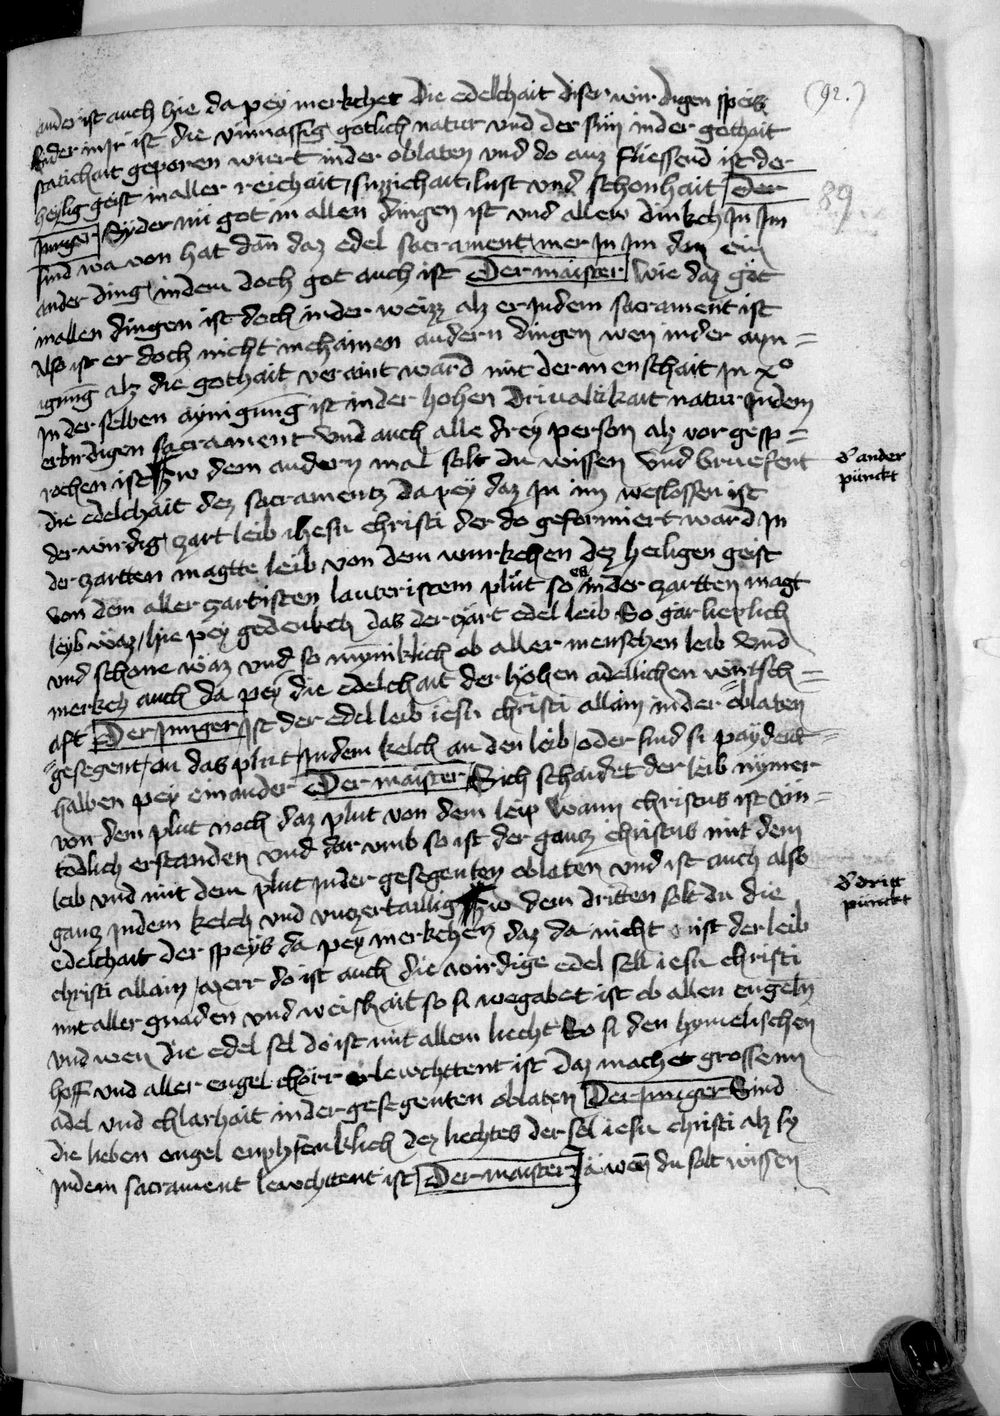 (92.)
89
ander ist auch hie da pey merkchet die edelchait diser wirdigen speis
Sider in ir ist die vnmassig gotlich natur vnd der sun in der gothait
statichait geporen wiert in der oblaten vnd do auz fliessend ist der
heylig geist in aller reichait, suzzichait, lust vnd schonhait Der
Junger Syder nu got in allen dingen ist vnd allew dinkch In Im
sind wa von hat dan daz edel sacrament mer In Im dan ein
ander ding, in dem doch got auch ist Der maister Wie daz got
in allen dingen ist doch in der weizz alz er In dem sacrament ist
Also ist er doch nicht in chainen andern dingen wen in der ayn=
igung alz die gothait veraint ward mit der menschait In xo
In der selben aynigung ist in der hohen Driualkkait natur In dem
erbirdigen sacrament Vnd auch alle drey person alz vor gesp=
rochen ist Zw dem andern mal solt du wissen Vnd bruefent
die edelchait dez sacramentz da pey daz In im weslossen ist
der wirdig, zart leib ihesu christi der do geformiert ward In
der zartten magtte leib von dem wurkchen dez heiligen geist
von dem aller zartisten lauteristem plut so es in der zartten magt
leyb waz, hie pey gedenkch das der zart edel leib So gar lieplich
vnd schone waz vnd so mynniklich ob aller menschen leib Vnd
merkch auch da pey die edelchait der hohen adellichen wirtsch=
aft Der Junger Ist der edel leib iesu christi allain in der oblaten
gesegent, an das plut, In dem kelch an den leib, oder sind si paydent=
halben pey einander Der maister Sich schaidet der leib nymer
von dem plut noch daz plut von dem leip Wann christus ist vn=
tödlich erstanden Vnd dar vmb so ist der gancz christus mit dem
leib vnd mit dem plut In der gesegenten oblaten vnd ist auch also
gancz In dem kelch vnd vnczertaillig Zw dem dritten solt du die
edelchait der speys da pey merkchen daz da nicht ist der leib
christi allain, Mer do ist auch die wirdige edel sell iesu christi
mit aller gnaden vnd weishait so si wegabet ist ob allen engeln
vnd wen die edel sel do ist mit allem liecht So si den hymelischen
hoff vnd aller engel chörr erlewchttent ist daz machet grossenn
adel vnd chlarhait in der gesegenten oblaten Der Junger Sind
die lieben engel enphfenklich dez liechtes der sel iesu christi alz sy
In dem sacrament lewchttent ist Der maister Ja wen du solt wissen
d' ander
punckt
d' dritt
punckt